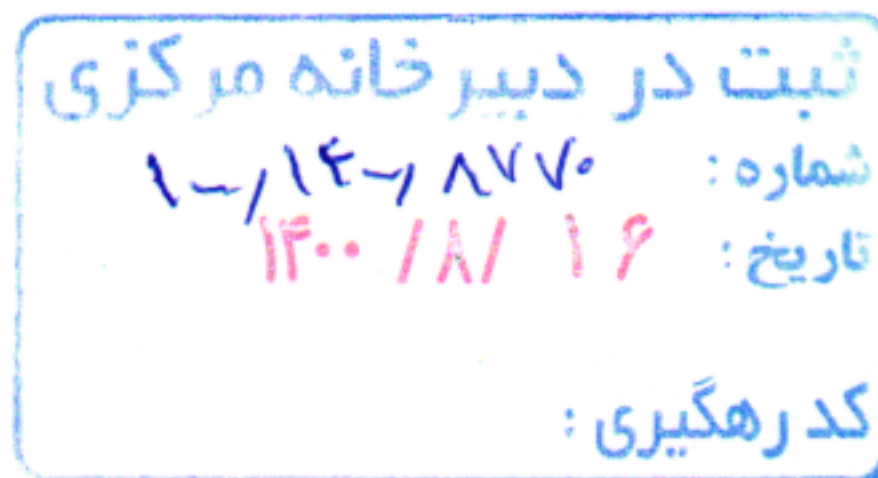 ثبت در دبیرخانه مرکزی
شماره: ۱۰۰/۱۴۰۰/۸۷۷۰
تاریخ: ۱۴۰۰/۸/۱۶
کد رهگیری: